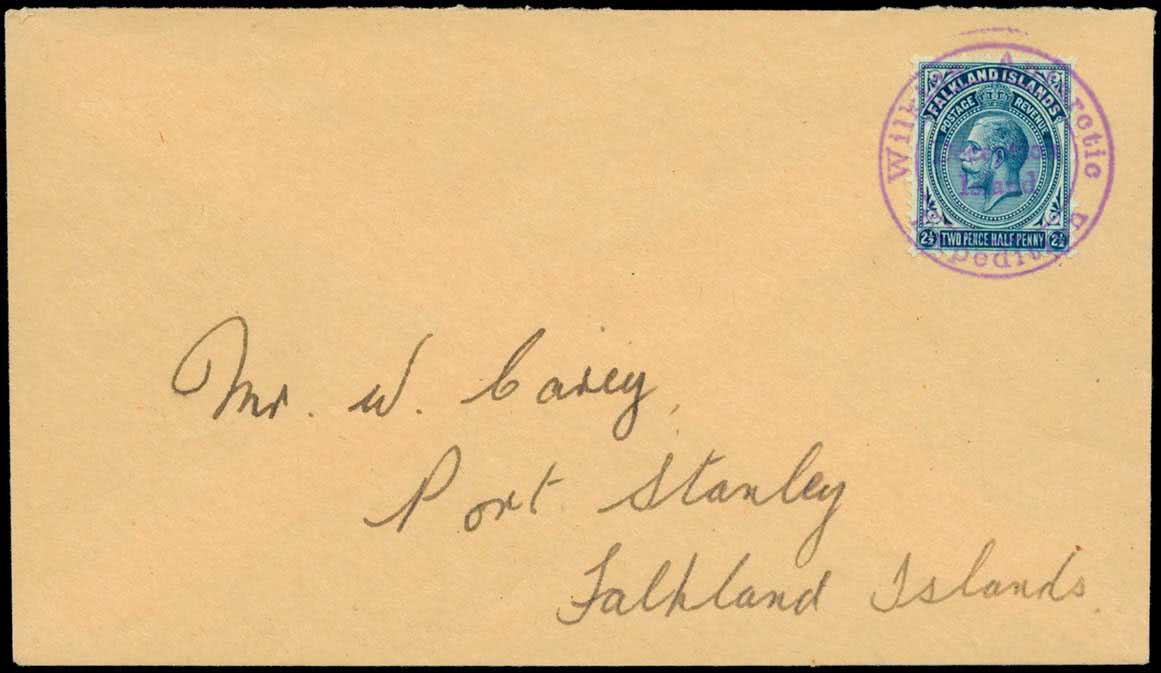 FALKLAND ISLANDS
POSTAGE REVENUE
2½ TWO PENCE HALF PENNY 2½
Island
Mr. W. Carey,
Port Stanley
Falkland Islands.